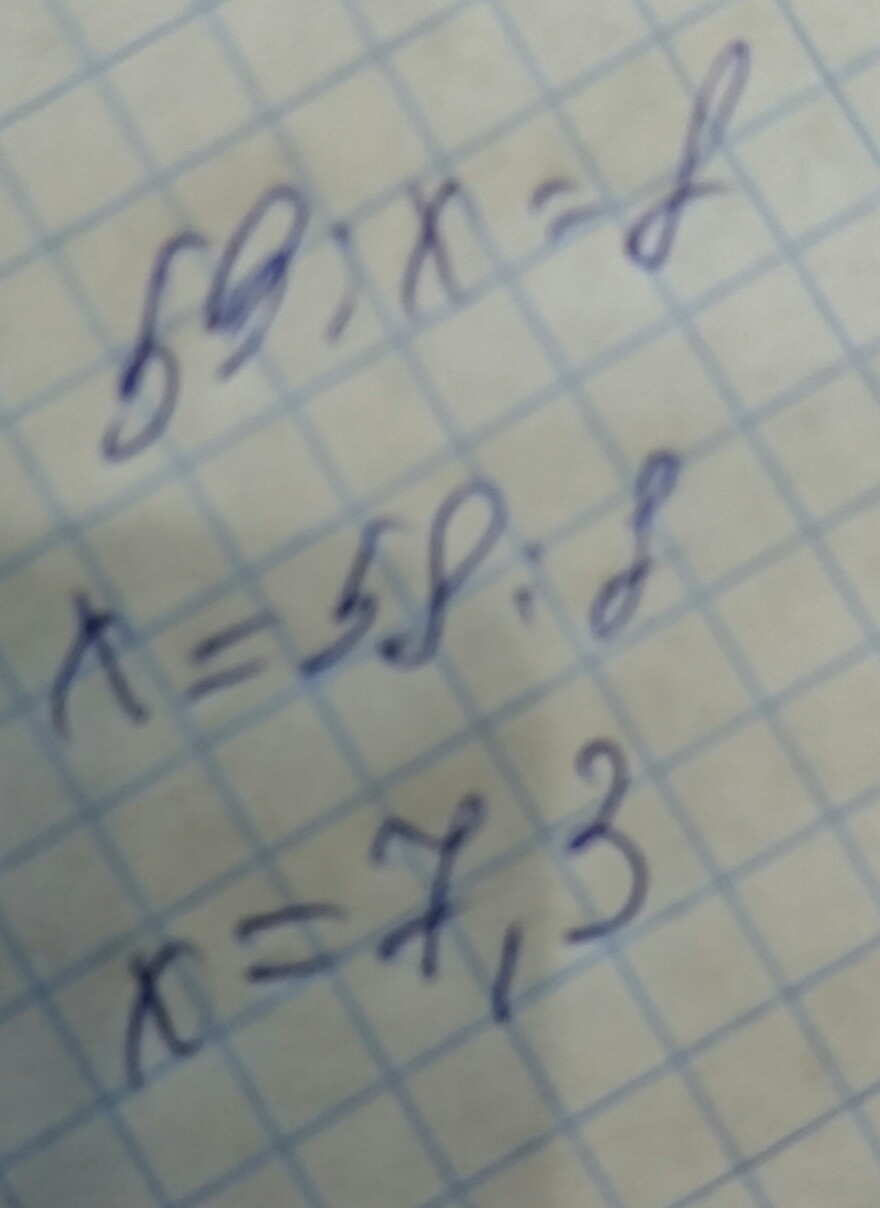 59 : x = 8
x = 58 : 8
x = 7,3